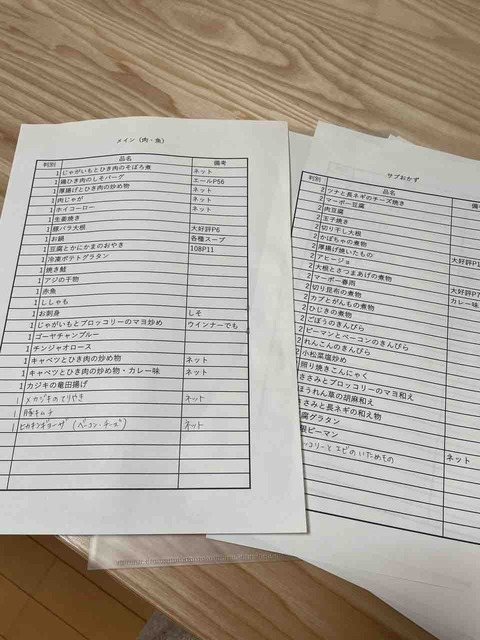 メイン（肉・魚）
判別 品名 備考
1 じゃがいもとひき肉のそぼろ煮 ネット
1 鶏ひき肉のしそバーグ エールP56
1 厚揚げとひき肉の炒め物 ネット
1 肉じゃが ネット
1 ホイコーロー ネット
1 生姜焼き
1 豚バラ大根 大好評P6
1 お鍋 各種スープ
1 豆腐とかにかまのおやき 108P11
1 冷凍ポテトグラタン
1 焼き鮭
1 アジの干物
1 赤魚
1 ししゃも
1 お刺身 しそ
1 じゃがいもとブロッコリーのマヨ炒め ウインナーでも
1 ゴーヤチャンプルー
1 チンジャオロース
1 キャベツとひき肉の炒め物 ネット
1 キャベツとひき肉の炒め物・カレー味 ネット
1 カジキの竜田揚げ
1 メカジキのてりやき ネット
1 豚キムチ
1 (ベーコン・チーズ) ネット
サブおかず
判別 品名
2 ツナと長ネギのチーズ焼き
2 マーボー豆腐
2 肉豆腐
2 玉子焼き
2 切り干し大根
2 かぼちゃの煮物
2 厚揚げ焼いたもの
2 アヒージョ 大好評P1
2 大根とさつまあげの煮物
2 マーボー春雨 大好評P
2 切り昆布の煮物 カレー味
2 カブとがんもの煮物
2 ひじきの煮物
2 ごぼうのきんぴら
2 ピーマンとベーコンのきんぴら
2 れんこんのきんぴら
2 小松菜塩炒め
照り焼きこんにゃく
ささみとブロッコリーのマヨ和え
ほうれん草の胡麻和え
ささみと長ネギの和え物
腐グラタン
ピーマン
ッコリーとエビのいためもの ネット